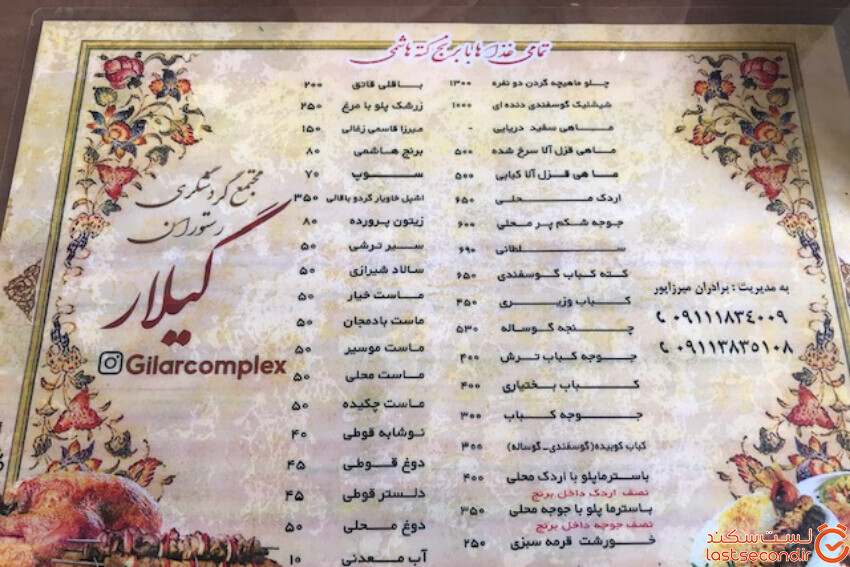 تمامی غذاها با برنج کته هاشمی
چلو ماهیچه گردن دو نفره ۱۳۰۰
شیشلیک گوسفندی دنده ای ۱۰۰۰
ماهی سفید دریایی -
ماهی قزل آلا سرخ شده ۵۰۰
ما هی قزل آلا کبابی ۵۰۰
اردک محلی ۶۵۰
جوجه شکم پر محلی ۶۰۰
سلطانی ۶۹۰
کته کباب گوسفندی ۶۵۰
کباب وزیری ۴۵۰
چنجه گوساله ۵۳۰
جوجه کباب ترش ۴۰۰
کباب بختیاری ۴۰۰
جوجه کباب ۳۰۰
کباب کوبیده(گوسفندی-گوساله) ۳۰۰
باسترماپلو با اردک محلی ۴۰۰
نصف اردک داخل برنج
باسترما پلو با جوجه محلی ۳۵۰
نصف جوجه داخل برنج
خورشت قرمه سبزی ۲۵۰
باقلی قاتق ۲۰۰
زرشک پلو با مرغ ۲۵۰
میرزا قاسمی زغالی ۱۵۰
برنج هاشمی ۸۰
سوپ ۷۰
اشپل خاویار گردو باقالی ۳۵۰
زیتون پرورده ۸۰
سیر ترشی ۵۰
سالاد شیرازی ۵۰
ماست خیار ۵۰
ماست بادمجان ۵۰
ماست موسیر ۵۰
ماست محلی ۵۰
ماست چکیده ۵۰
نوشابه قوطی ۴۰
دوغ قوطی ۴۵
دلستر قوطی ۴۵
دوغ محلی ۵۰
آب معدنی ۱۰
مجتمع گردشگری
رستوران
گیلار
Gilarcomplex
به مدیریت : برادران میرزاپور
۰۹۱۱۱۸۳۴۰۰۹
۰۹۱۱۳۸۳۵۱۰۸
لست سکند
lastsecond.ir